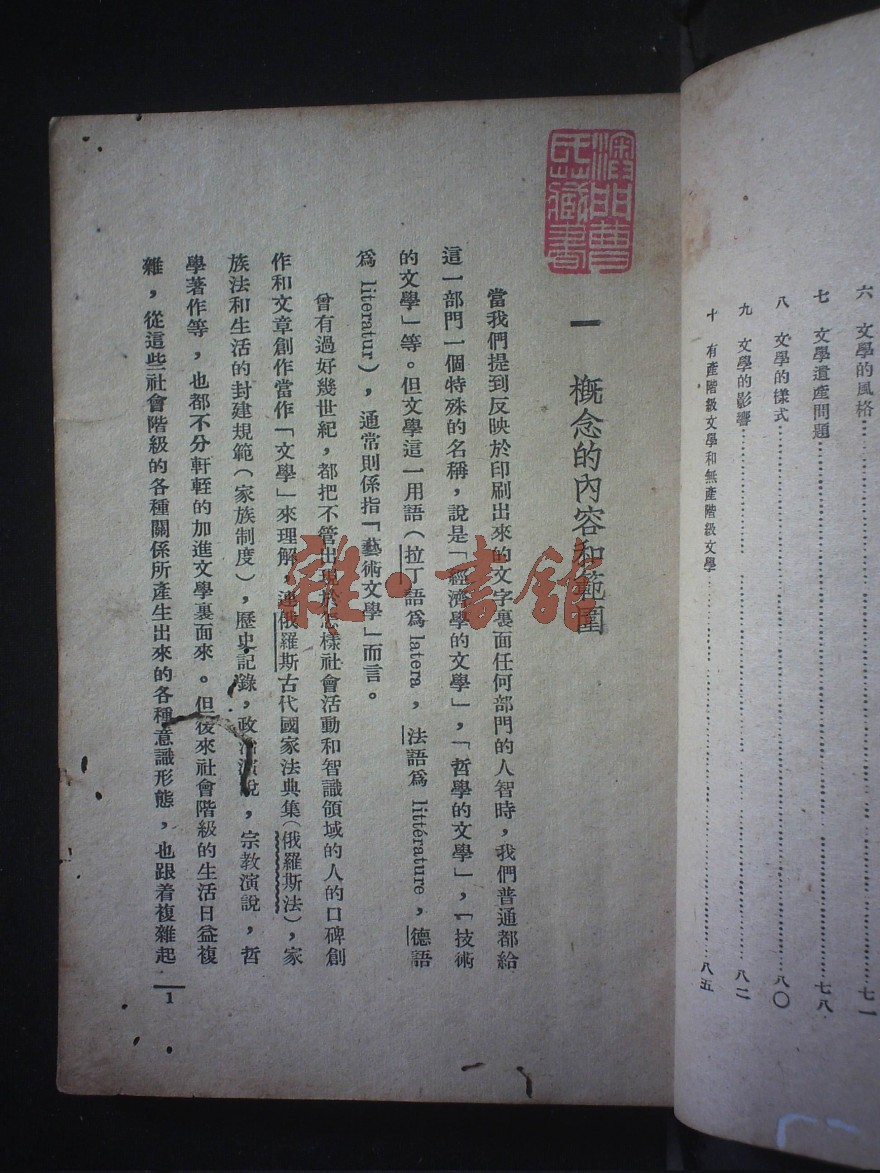 六　文學的風格……七一
七　文學遺產問題……七八
八　文學的樣式……八〇
九　文學的影響……八二
十　有產階級文學和無產階級文學……八五
澳門曹氏藏書
一　概念的內容和範圍
當我們提到反映於印刷出來的文字裏面任何部門的人智時，我們普通都給
這一部門一個特殊的名稱，說是「經濟學的文學」，「哲學的文學」，「技術
的文學」等。但文學這一用語（拉丁語爲 latera，法語爲 littérature，德語
爲 literatur），通常則係指「藝術文學」而言。
曾有過好幾世紀，都把不管出現於怎樣社會活動和智識領域的人的口碑創
作和文章創作當作「文學」來理解，連俄羅斯古代國家法典集（俄羅斯法），家
族法和生活的封建規範（家族制度），歷史記錄，政治演說，宗教演說，哲
學著作等，也都不分軒輊的加進文學裏面來。但後來社會階級的生活日益複
雜，從這些社會階級的各種關係所產生出來的各種意識形態，也跟着複雜起
1
雜·書館